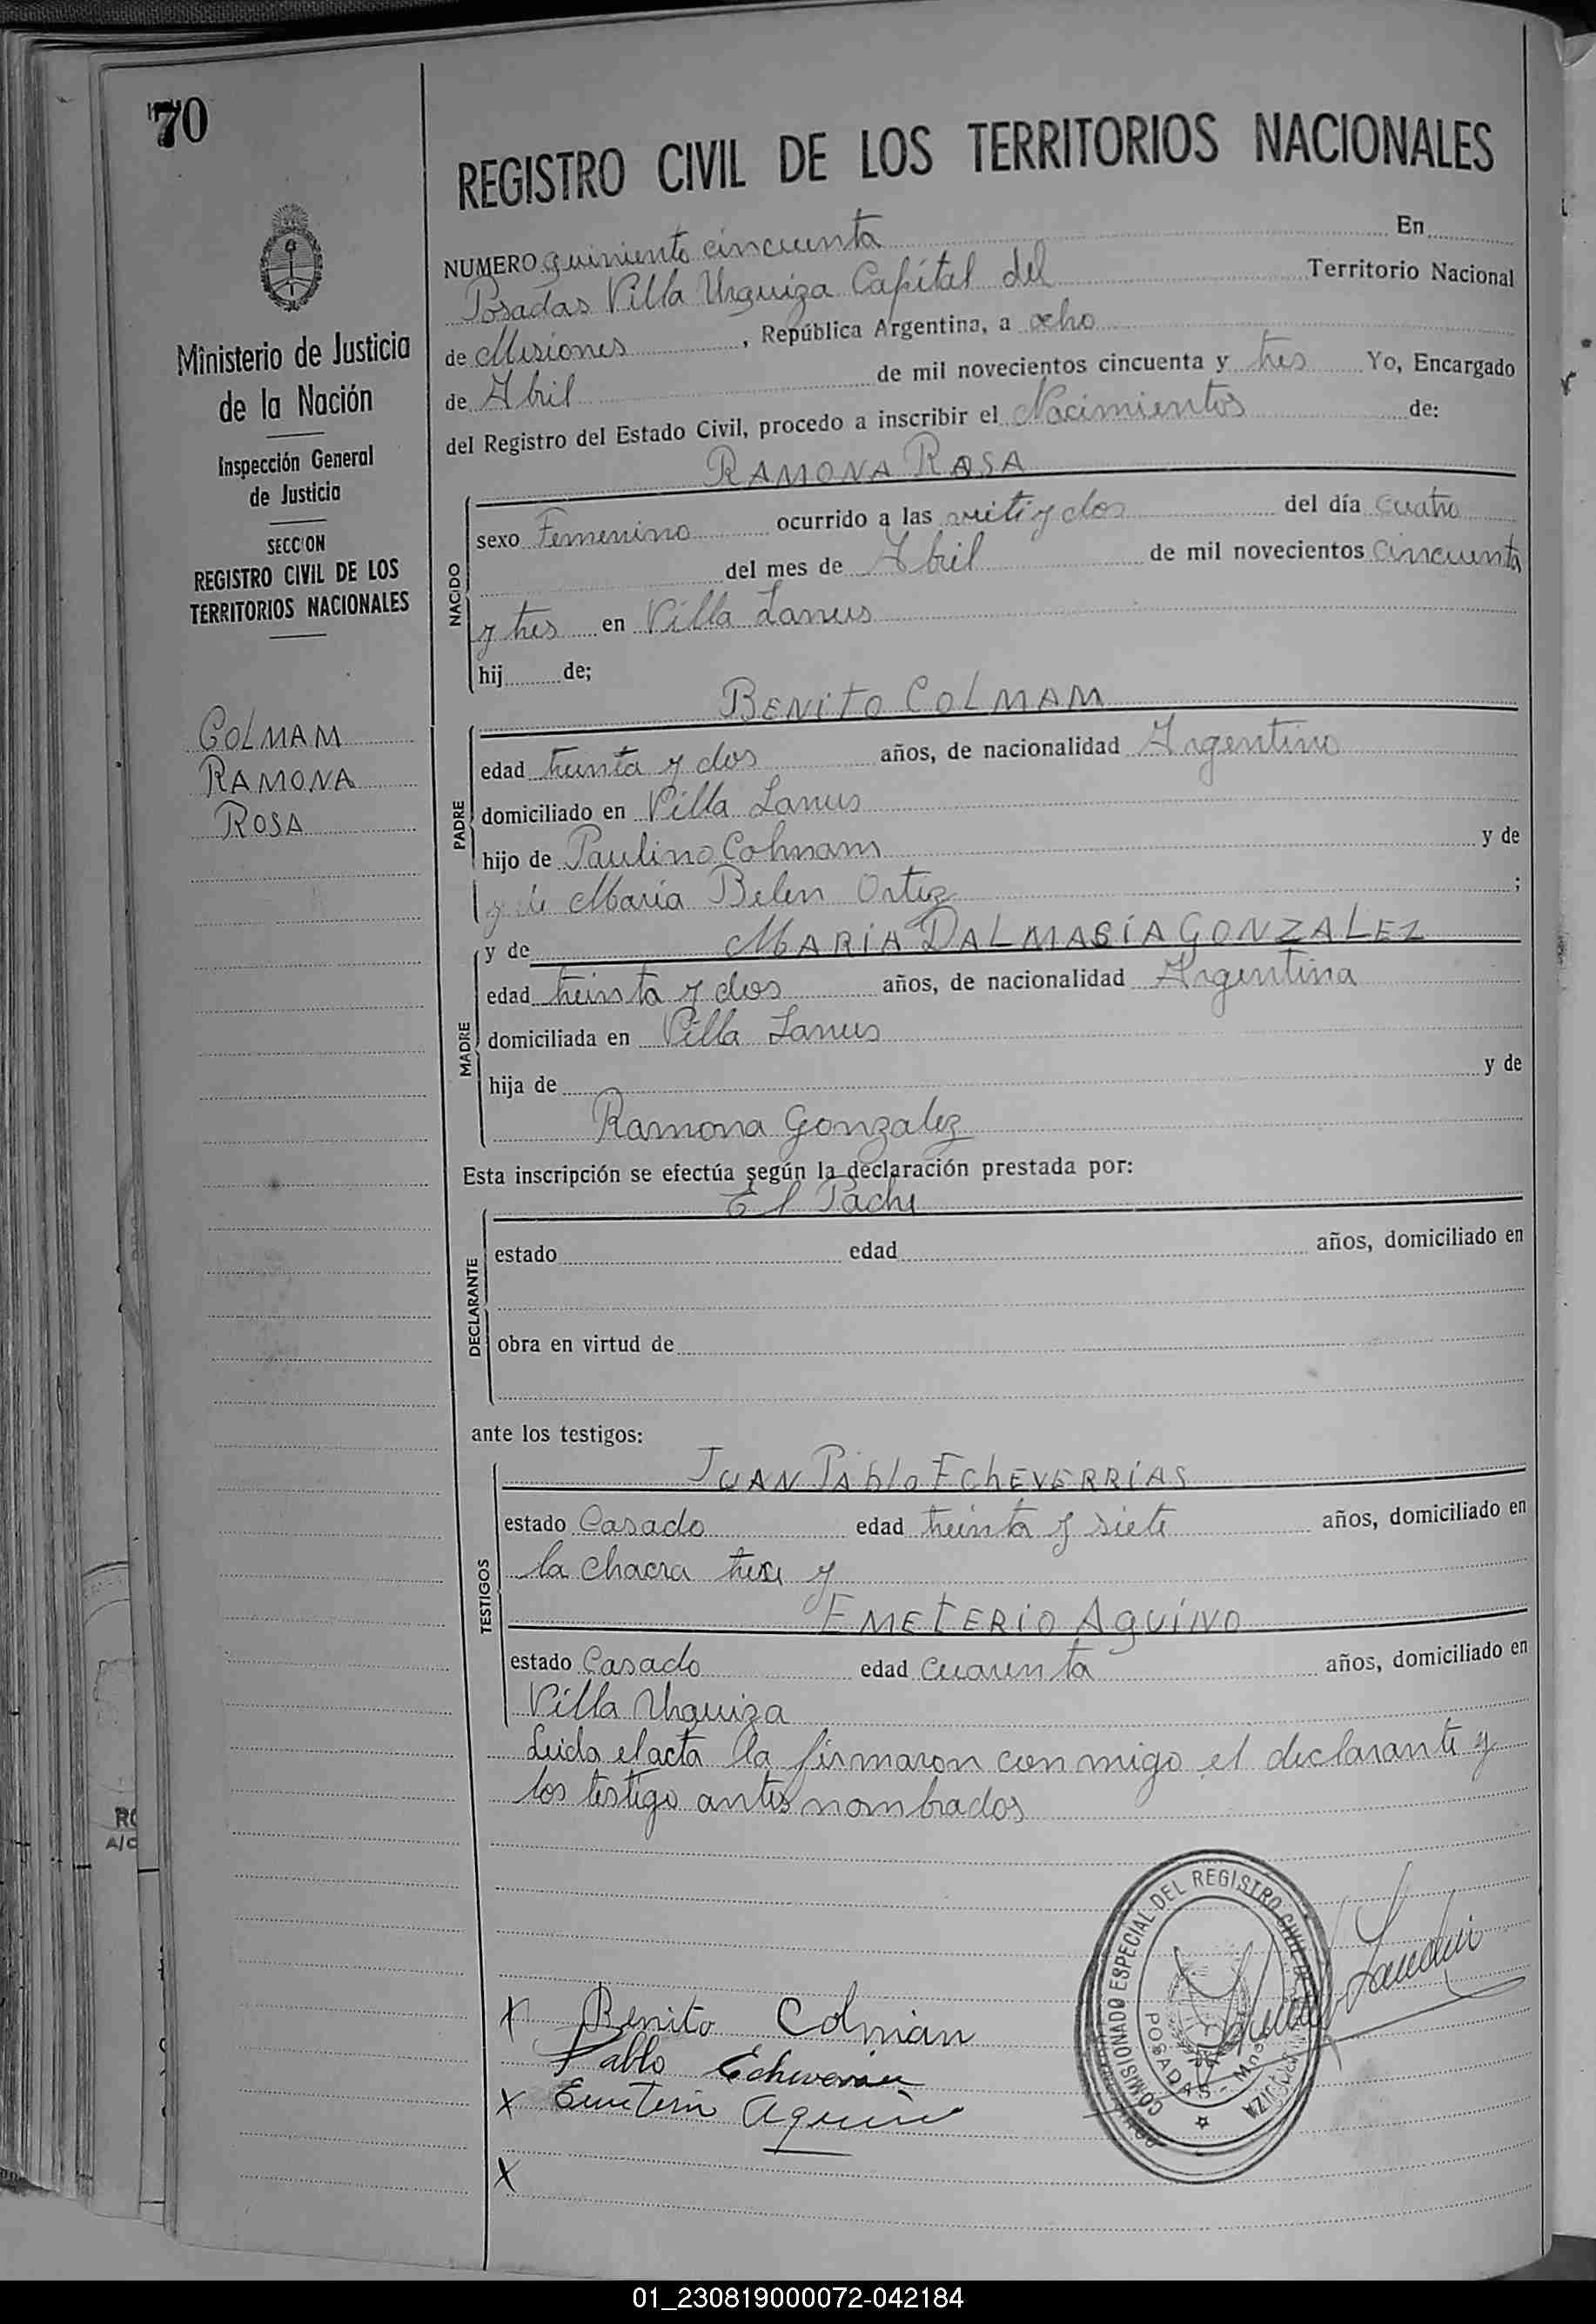 70
REGISTRO CIVIL DE LOS TERRITORIOS NACIONALES
Ministerio de Justicia
de la Nación
Inspección General
de Justicia
SECCION
REGISTRO CIVIL DE LOS
TERRITORIOS NACIONALES
COLMAM
RAMONA
ROSA
NUMERO quiniento cincuenta En
Posadas Villa Urquiza Capital del Territorio Nacional
de Misiones, República Argentina, a ocho
de Abril de mil novecientos cincuenta y tres Yo, Encargado
del Registro del Estado Civil, procedo a inscribir el Nacimientos de:
RAMONA ROSA
NACIDO
sexo Femenino ocurrido a las veitiydos del día cuatro
del mes de Abril de mil novecientos cincuenta
y tres en Villa Lanus
hij de;
BENITO COLMAM
PADRE
edad treinta y dos años, de nacionalidad Argentino
domiciliado en Villa Lanus
hijo de Paulino Colmam y de
y de Maria Belen Ortiz ;
y de MARIA DALMASIA GONZALEZ
MADRE
edad treinta y dos años, de nacionalidad Argentina
domiciliada en Villa Lanus
hija de y de
Ramona Gonzalez
Esta inscripción se efectúa según la declaración prestada por:
El Padre
DECLARANTE
estado edad años, domiciliado en
obra en virtud de
ante los testigos:
JUAN PAblo EChEVERRIAS
TESTIGOS
estado Casado edad treinta y siete años, domiciliado en
la chacra trece y
EMETERIO AQUINO
estado Casado edad cuarenta años, domiciliado en
Villa Urquiza
Leida el acta la firmaron conmigo el declarante y
los testigo antes nombrados
COMISIONADO ESPECIAL DEL REGISTRO CIVIL
POSADAS - Mnes
X Benito Colman
Pablo Echeverria
X Emeterio Aquino
X
01_230819000072-042184